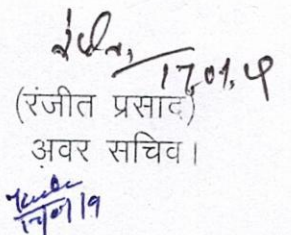 17.01.19
(रंजीत प्रसाद)
अवर सचिव।
17/01/19